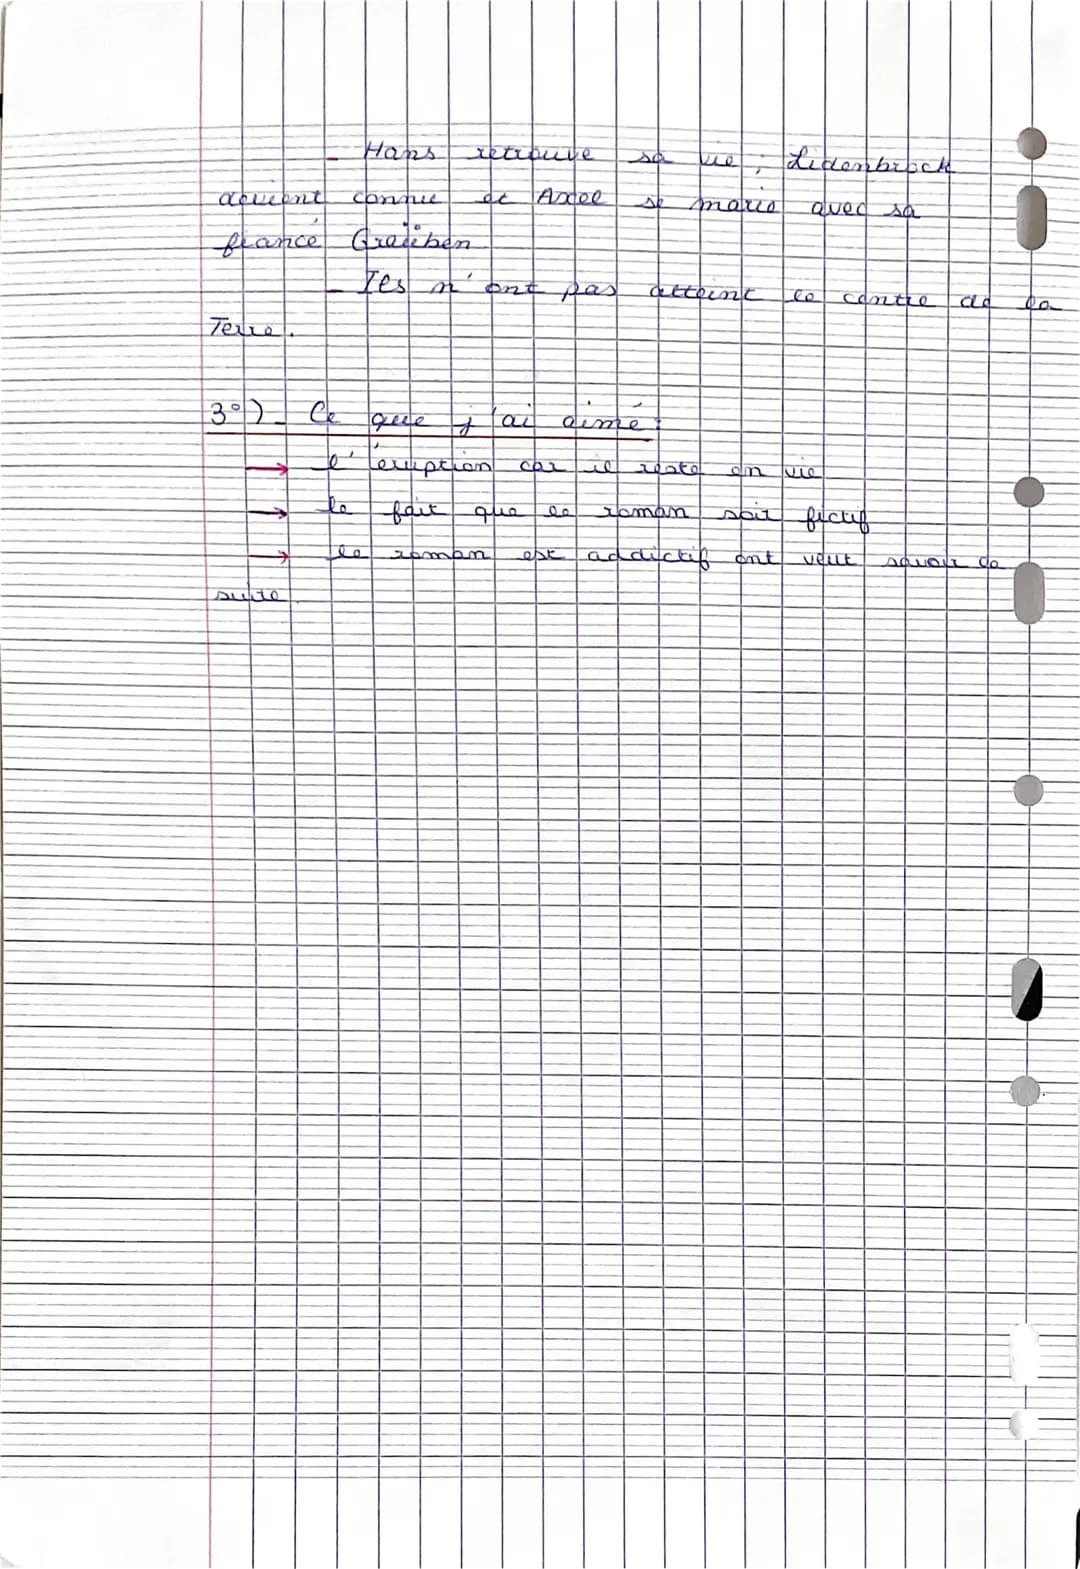 - Hans retrouve sa vie, Lidenbrock
devient connu et Axel se marie avec sa
fiancé Graüben
- Ils n'ont pas atteint le centre de la
Terre.
3°)- Ce que j'ai aimé :
→ l'éruption car il reste en vie
→ le fait que le roman soit fictif
→ le roman est addictif ont veut savoir la
suite.